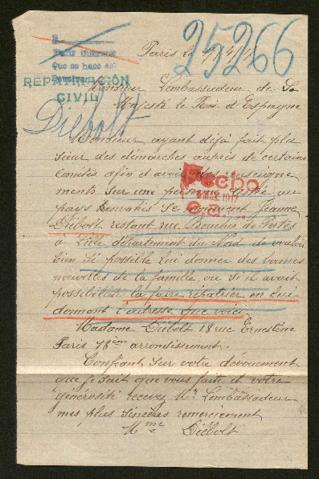 25266
Paris le
REPATRIACIÓN
CIVIL
Diebolt
Monsieur l'ambassadeur de Sa
Majesté le Roi d'Espagne
Monsieur ayant déjà fait plu
sieur des démarches auprès de certains
comités afin d'avoir des renseigne
ments sur une personne
pays se nommant Jeanne
Diebolt restant rue
a Lille département du Nord de vouloir
bien si possible lui donner des
nouvelles de la famille ou si il aurait
possibilité la faire répatrier en lui
donnant l'adresse que voici
Madame Diebolt 18 rue Ernestine
Paris 18ème arrondissement.
Confiant sur votre dévouement
que je sait que vous faite et votre
générosité recevez Mr l'ambassadeur
mes plus sincères remerciement
Mme Diebolt